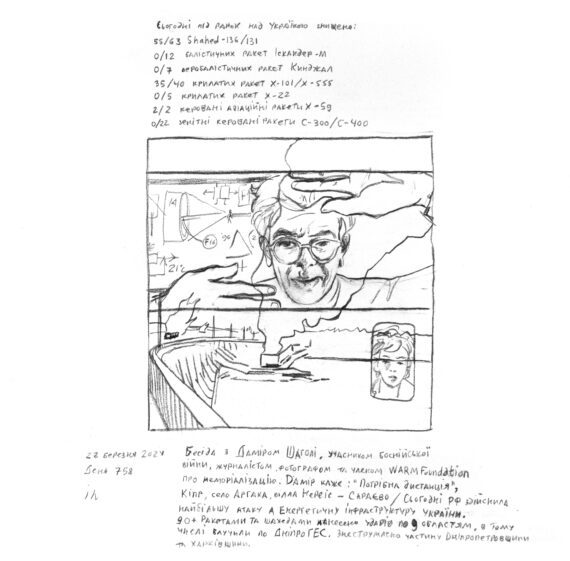 Сьогодні під ранок над Україною знищено:
55/63 Shahed-136/131
0/12 балістичних ракет Іскандер-М
0/7 аеробалістичних ракет Кинджал
35/40 крилатих ракет Х-101/Х-555
0/5 крилатих ракет Х-22
2/2 керовані авіаційні ракети Х-59
0/22 зенітні керовані ракети С-300/С-400
F16
21
22 березня 2024
День 758
Бесіда з Даміром Шаголі, учасником боснійської
війни, журналістом, фотографом та членом WARM Foundation
про меморіалізацію. Дамір каже: "Потрібна дистанція",
Кіпр, село Аргака, вілла Нереїс – Сараєво / Сьогодні РФ здійснила
найбільшу атаку на енергетичну інфраструктуру України.
90+ ракетами та шахедами нанесено ударів по 9 областям, в тому
числі влучили по ДніпроГЕС. Знеструмлено частину Дніпропетровщини
та Харківщини.